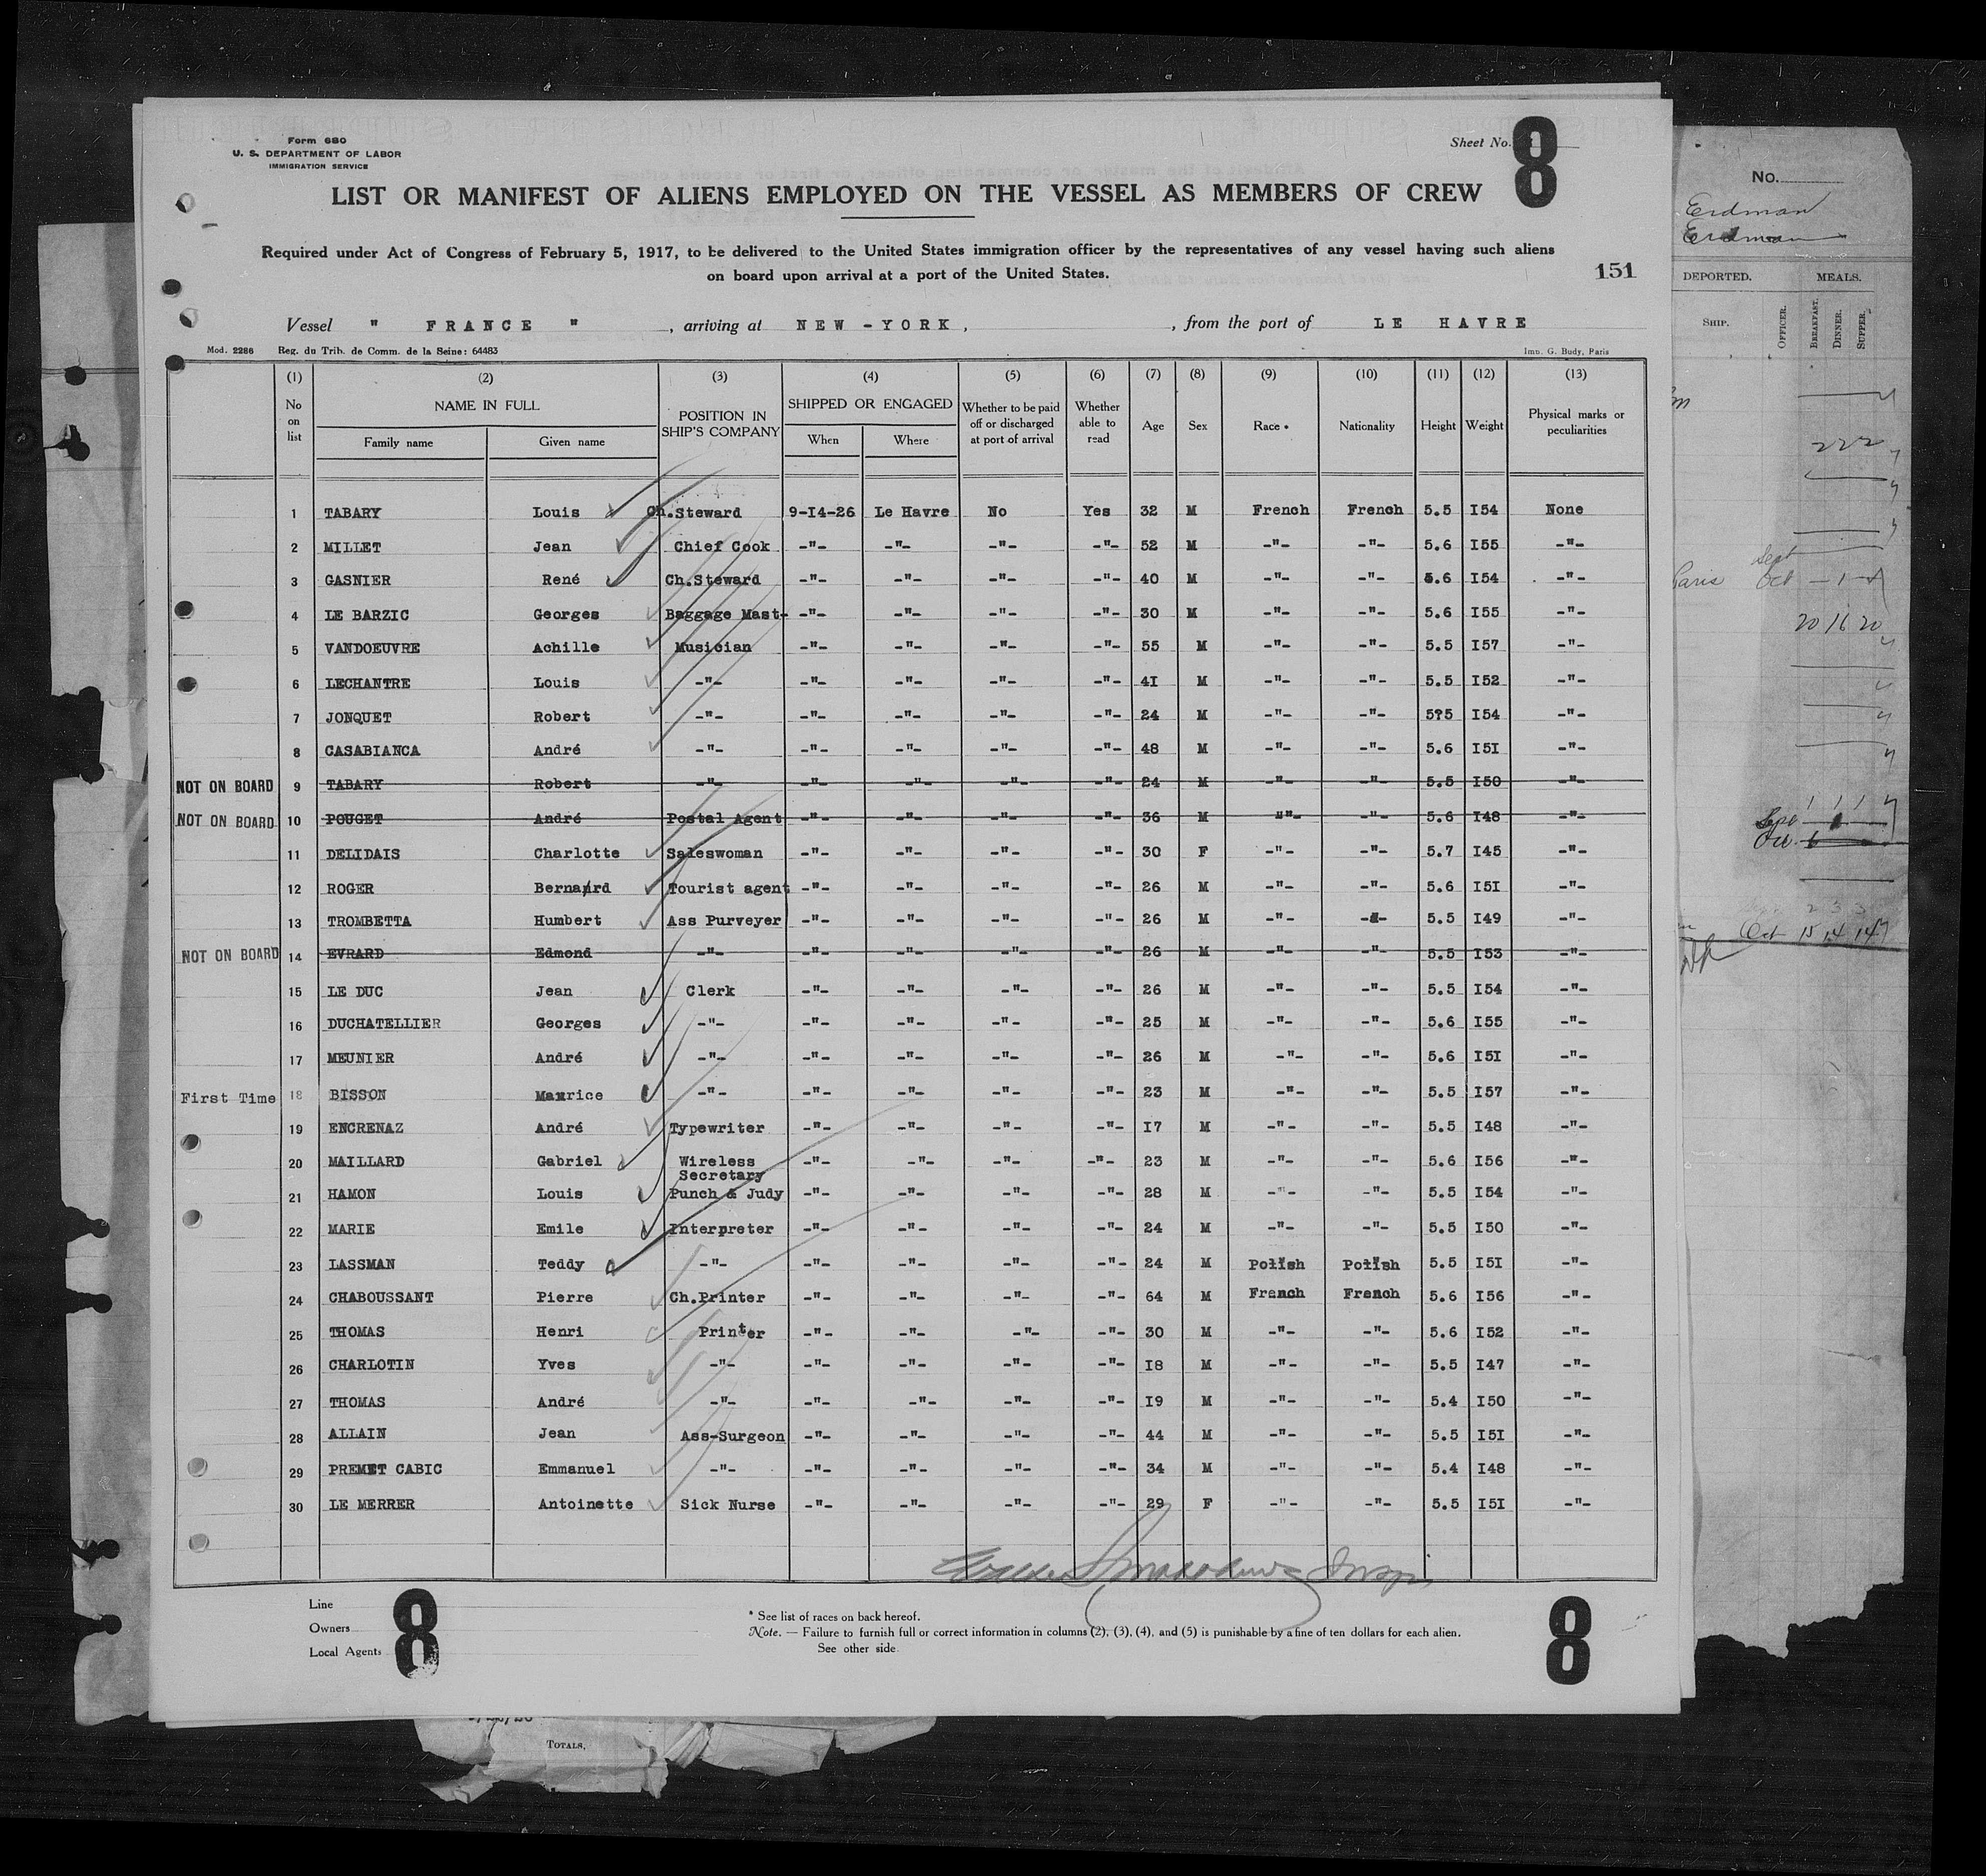 Form 680
U. S. DEPARTMENT OF LABOR
IMMIGRATION SERVICE
Sheet No. 8
LIST OR MANIFEST OF ALIENS EMPLOYED ON THE VESSEL AS MEMBERS OF CREW
Required under Act of Congress of February 5, 1917, to be delivered to the United States immigration officer by the representatives of any vessel having such aliens
on board upon arrival at a port of the United States.
151
Vessel " FRANCE " , arriving at NEW-YORK, , from the port of LE HAVRE
Mod. 2286 Reg. du Trib. de Comm. de la Seine: 64483 Imp. G. Budy, Paris
(1) (2) (3) (4) (5) (6) (7) (8) (9) (10) (11) (12) (13)
No on list NAME IN FULL Family name Given name POSITION IN SHIP'S COMPANY SHIPPED OR ENGAGED When Where Whether to be paid off or discharged at port of arrival Whether able to read Age Sex Race * Nationality Height Weight Physical marks or peculiarities
1 TABARY Louis Ch.Steward 9-I4-26 Le Havre No Yes 32 M French French 5.5 I54 None
2 MILLET Jean Chief Cook -"- -"- -"- -"- 52 M -"- -"- 5.6 I55 -"-
3 GASNIER René Ch.Steward -"- -"- -"- -"- 40 M -"- -"- 5.6 I54 -"-
4 LE BARZIC Georges Baggage Mast- -"- -"- -"- -"- 30 M -"- -"- 5.6 I55 -"-
5 VANDOEUVRE Achille Musician -"- -"- -"- -"- 55 M -"- -"- 5.5 I57 -"-
6 LECHANTRE Louis -"- -"- -"- -"- -"- 4I M -"- -"- 5.5 I52 -"-
7 JONQUET Robert -"- -"- -"- -"- -"- 24 M -"- -"- 5?5 I54 -"-
8 CASABIANCA André -"- -"- -"- -"- -"- 48 M -"- -"- 5.6 I5I -"-
NOT ON BOARD 9 TABARY Robert -"- -"- -"- -"- -"- 24 M -"- -"- 5.5 I50 -"-
NOT ON BOARD 10 POUGET André Postal Agent -"- -"- -"- -"- 36 M -"- -"- 5.6 I48 -"-
11 DELIDAIS Charlotte Saleswoman -"- -"- -"- -"- 30 F -"- -"- 5.7 I45 -"-
12 ROGER Bernard Tourist agent -"- -"- -"- -"- 26 M -"- -"- 5.6 I5I -"-
13 TROMBETTA Humbert Ass Purveyer -"- -"- -"- -"- 26 M -"- -"- 5.5 I49 -"-
NOT ON BOARD 14 EVRARD Edmond -"- -"- -"- -"- -"- 26 M -"- -"- 5.5 I53 -"-
15 LE DUC Jean Clerk -"- -"- -"- -"- 26 M -"- -"- 5.5 I54 -"-
16 DUCHATELLIER Georges -"- -"- -"- -"- -"- 25 M -"- -"- 5.6 I55 -"-
17 MEUNIER André -"- -"- -"- -"- -"- 26 M -"- -"- 5.6 I5I -"-
First Time 18 BISSON Maurice -"- -"- -"- -"- -"- 23 M -"- -"- 5.5 I57 -"-
19 ENCRENAZ André Typewriter -"- -"- -"- -"- I7 M -"- -"- 5.5 I48 -"-
20 MAILLARD Gabriel Wireless Secretary -"- -"- -"- -"- 23 M -"- -"- 5.6 I56 -"-
21 HAMON Louis Punch & Judy -"- -"- -"- -"- 28 M -"- -"- 5.5 I54 -"-
22 MARIE Emile Interpreter -"- -"- -"- -"- 24 M -"- -"- 5.5 I50 -"-
23 LASSMAN Teddy -"- -"- -"- -"- -"- 24 M Polish Polish 5.5 I5I -"-
24 CHABOUSSANT Pierre Ch.Printer -"- -"- -"- -"- 64 M French French 5.6 I56 -"-
25 THOMAS Henri Printer -"- -"- -"- -"- 30 M -"- -"- 5.6 I52 -"-
26 CHARLOTIN Yves -"- -"- -"- -"- -"- I8 M -"- -"- 5.5 I47 -"-
27 THOMAS André -"- -"- -"- -"- -"- I9 M -"- -"- 5.4 I50 -"-
28 ALLAIN Jean Ass-Surgeon -"- -"- -"- -"- 44 M -"- -"- 5.5 I5I -"-
29 PREMET CABIC Emmanuel -"- -"- -"- -"- -"- 34 M -"- -"- 5.4 I48 -"-
30 LE MERRER Antoinette Sick Nurse -"- -"- -"- -"- 29 F -"- -"- 5.5 I5I -"-
Line
Owners
Local Agents
8
* See list of races on back hereof.
Note. — Failure to furnish full or correct information in columns (2), (3), (4), and (5) is punishable by a fine of ten dollars for each alien.
See other side
8
TOTALS,
No.
Erdman
Erdman
DEPORTED. MEALS.
SHIP. OFFICER. BREAKFAST. DINNER. SUPPER.
222
Paris Sept
Oct
20 16 20
Oct 15 14 14